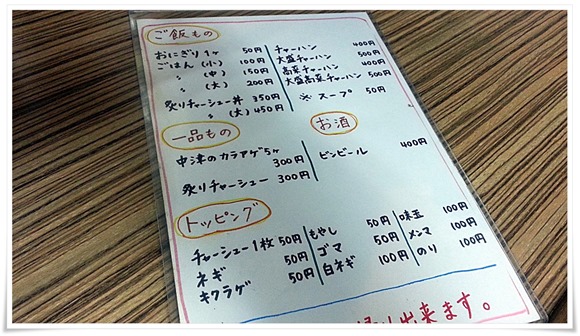 ご飯もの
おにぎり1ヶ 50円
ごはん (小) 100円
〃 (中) 150円
〃 (大) 200円
炙りチャーシュー丼 350円
〃 (大) 450円
チャーハン 400円
大盛チャーハン 500円
高菜チャーハン 400円
大盛高菜チャーハン 500円
※ スープ 50円
一品もの
中津のカラアゲ5ヶ
300円
炙りチャーシュー 300円
お酒
ビンビール 400円
トッピング
チャーシュー1枚 50円
ネギ 50円
キクラゲ 50円
もやし 50円
ゴマ 50円
白ネギ 100円
味玉 100円
メンマ 100円
のり 100円
出来ます。